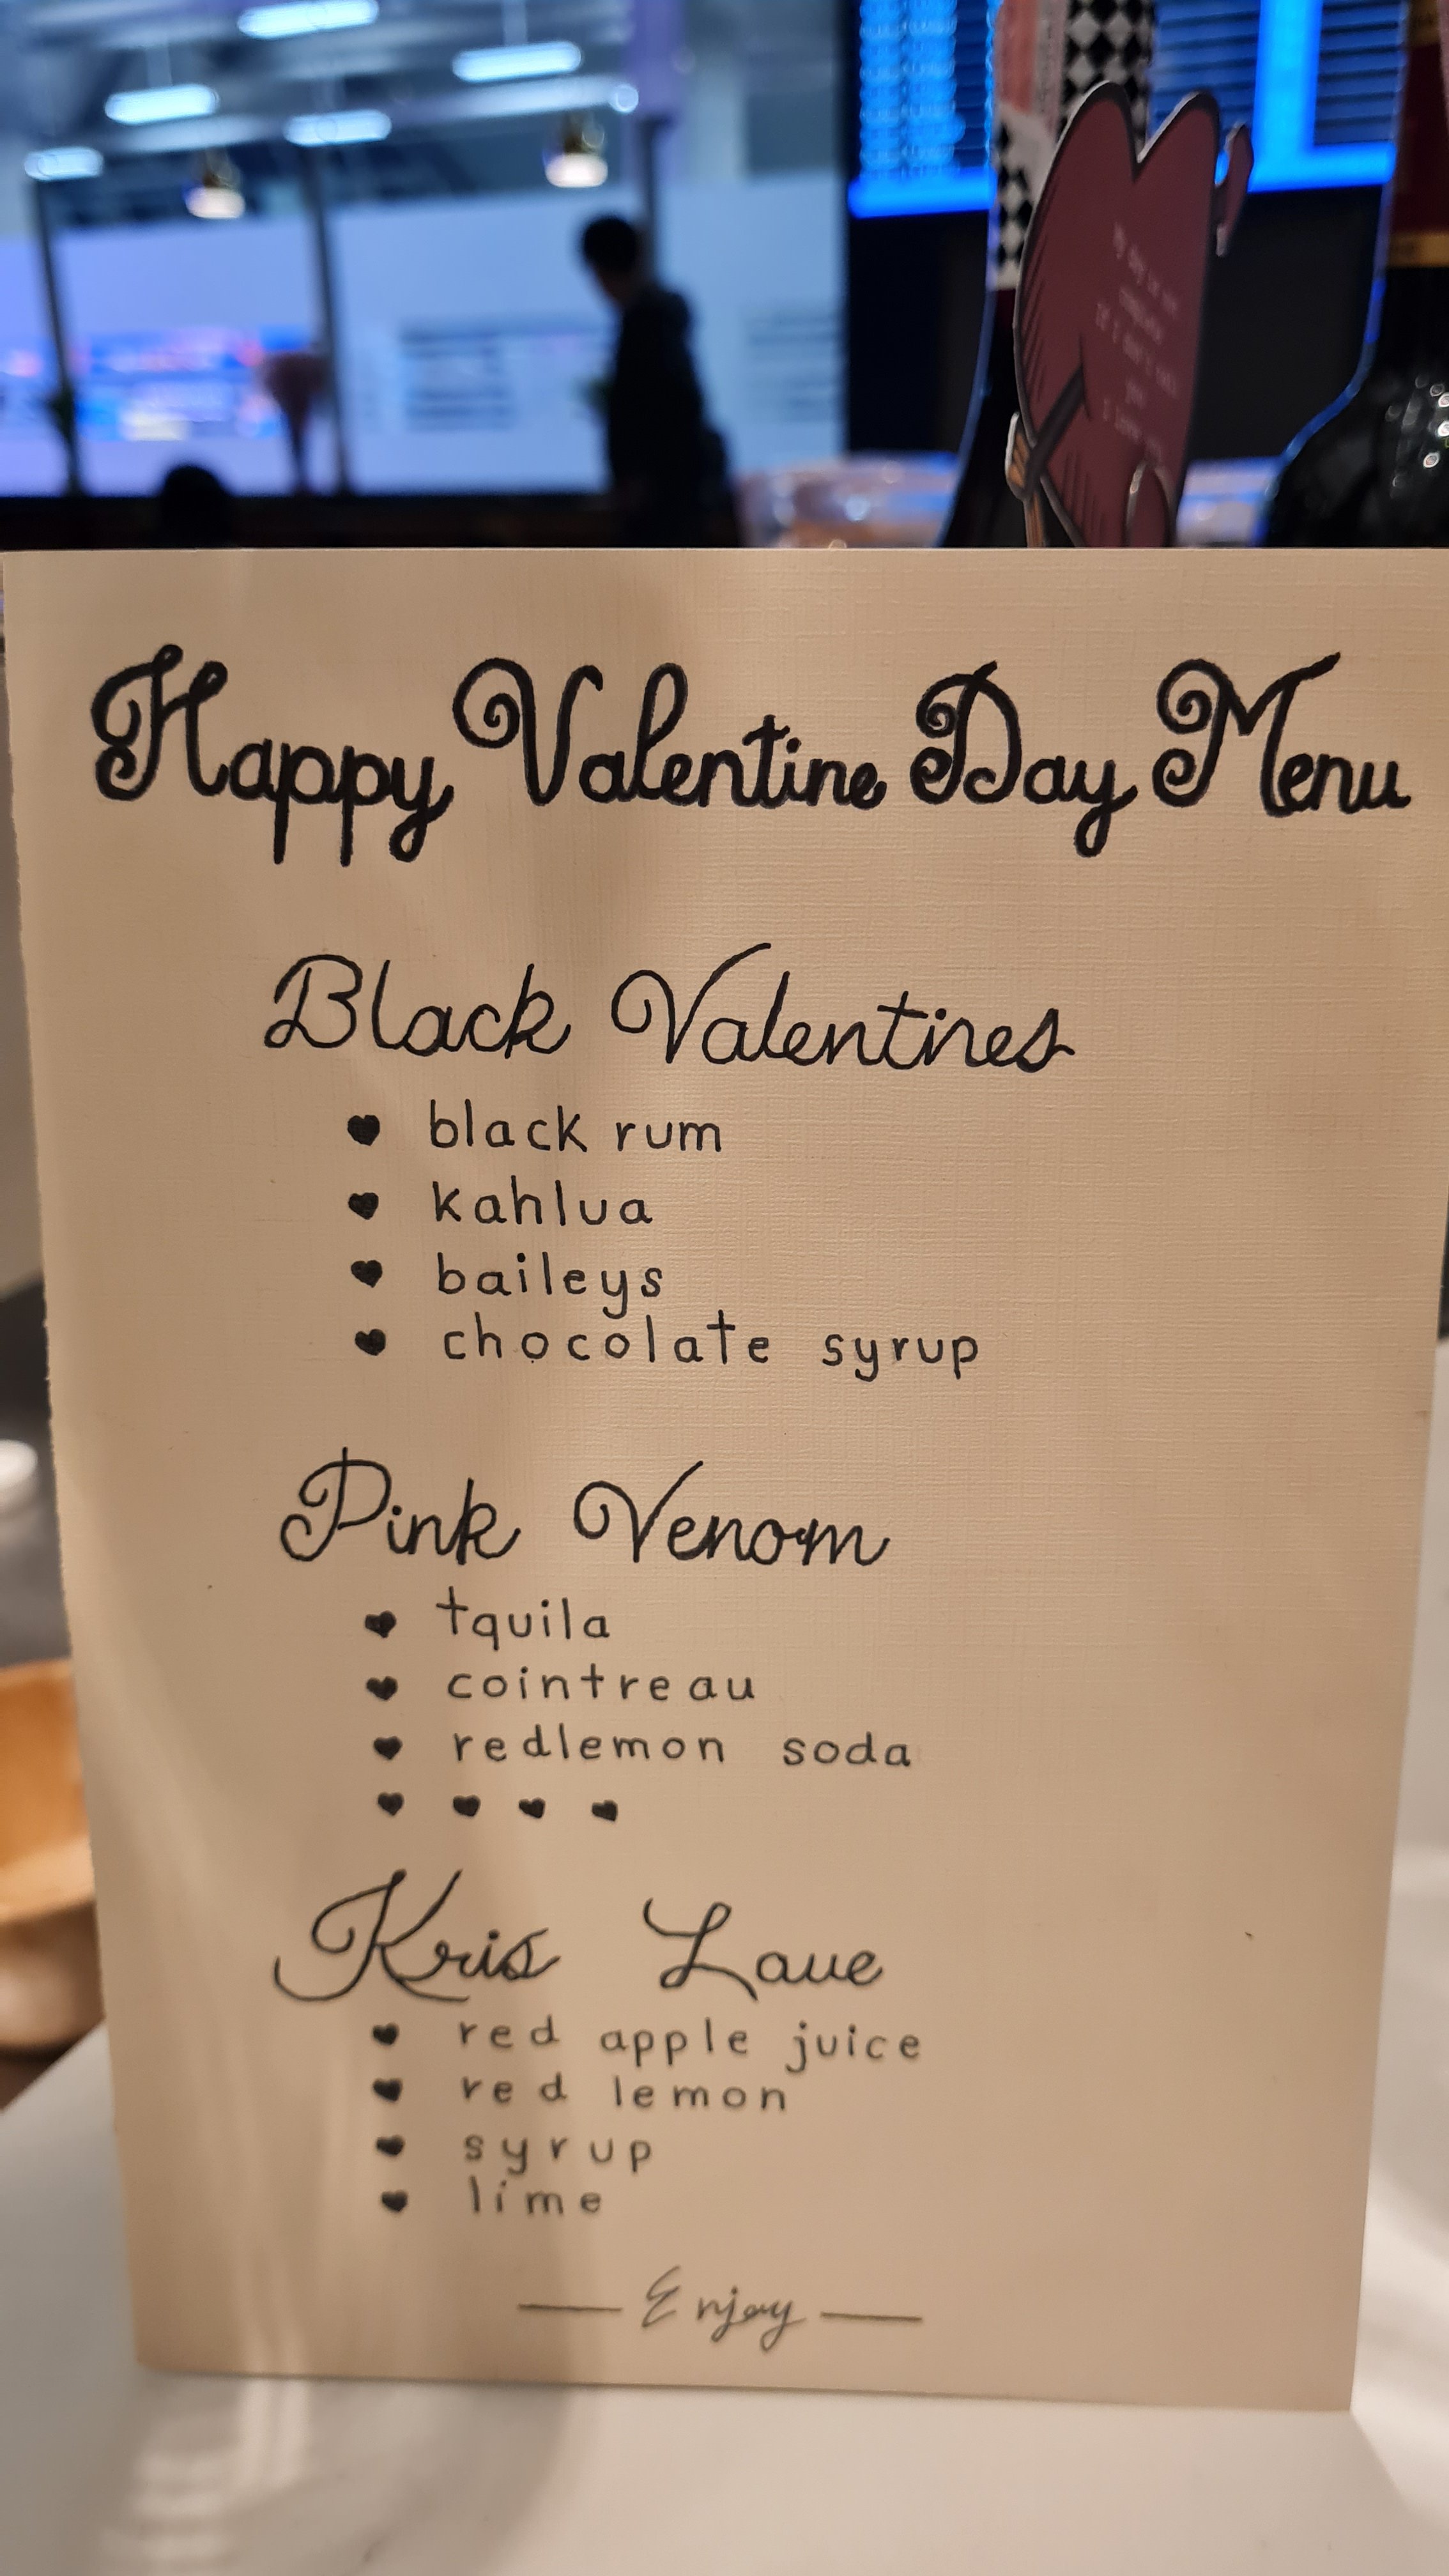 Happy Valentine Day Menu
Black Valentines
♥ black rum
♥ kahlua
♥ baileys
♥ chocolate syrup
Pink Venom
♥ tquila
♥ cointreau
♥ redlemon soda
♥ ♥ ♥ ♥
Kris Laue
♥ red apple juice
♥ red lemon
♥ syrup
♥ lime
— Enjoy —